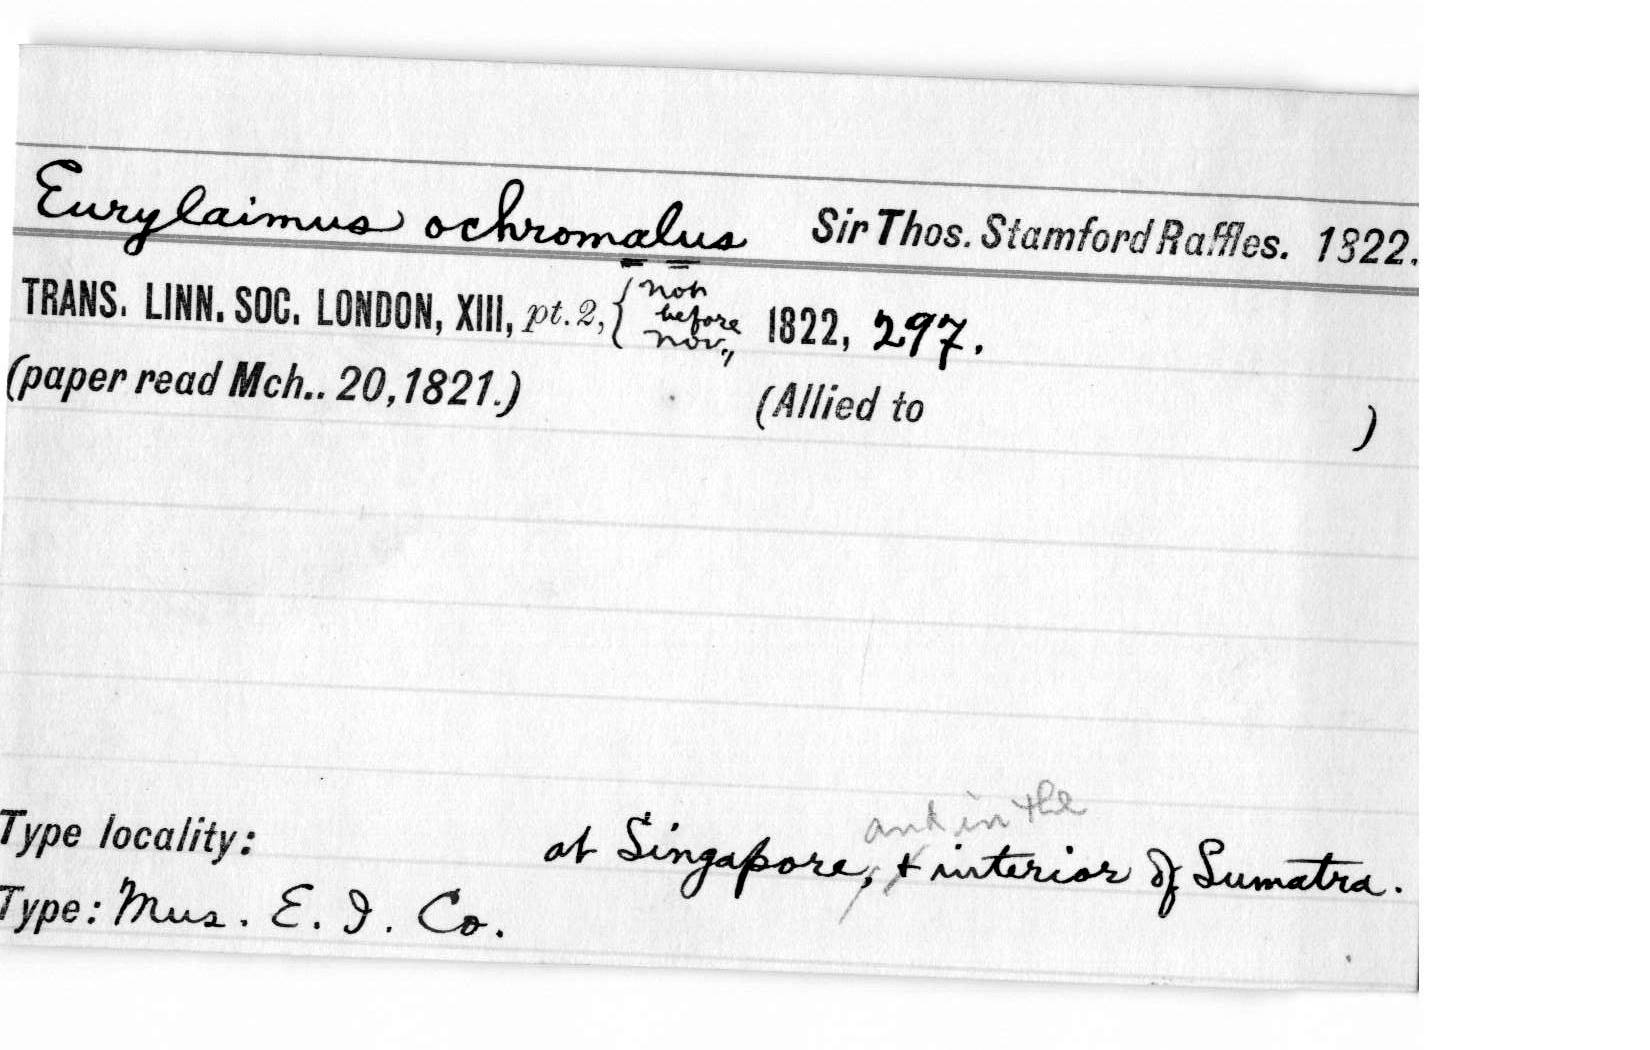 Eurylaimus ochromalus Sir Thos. Stamford Raffles. 1822.
TRANS. LINN. SOC. LONDON, XIII, pt. 2, { not before Nov., 1822, 297.
(paper read Mch.. 20, 1821.) (Allied to )
and in the
Type locality: at Singapore, & interior of Sumatra.
Type: Mus. E. I. Co.